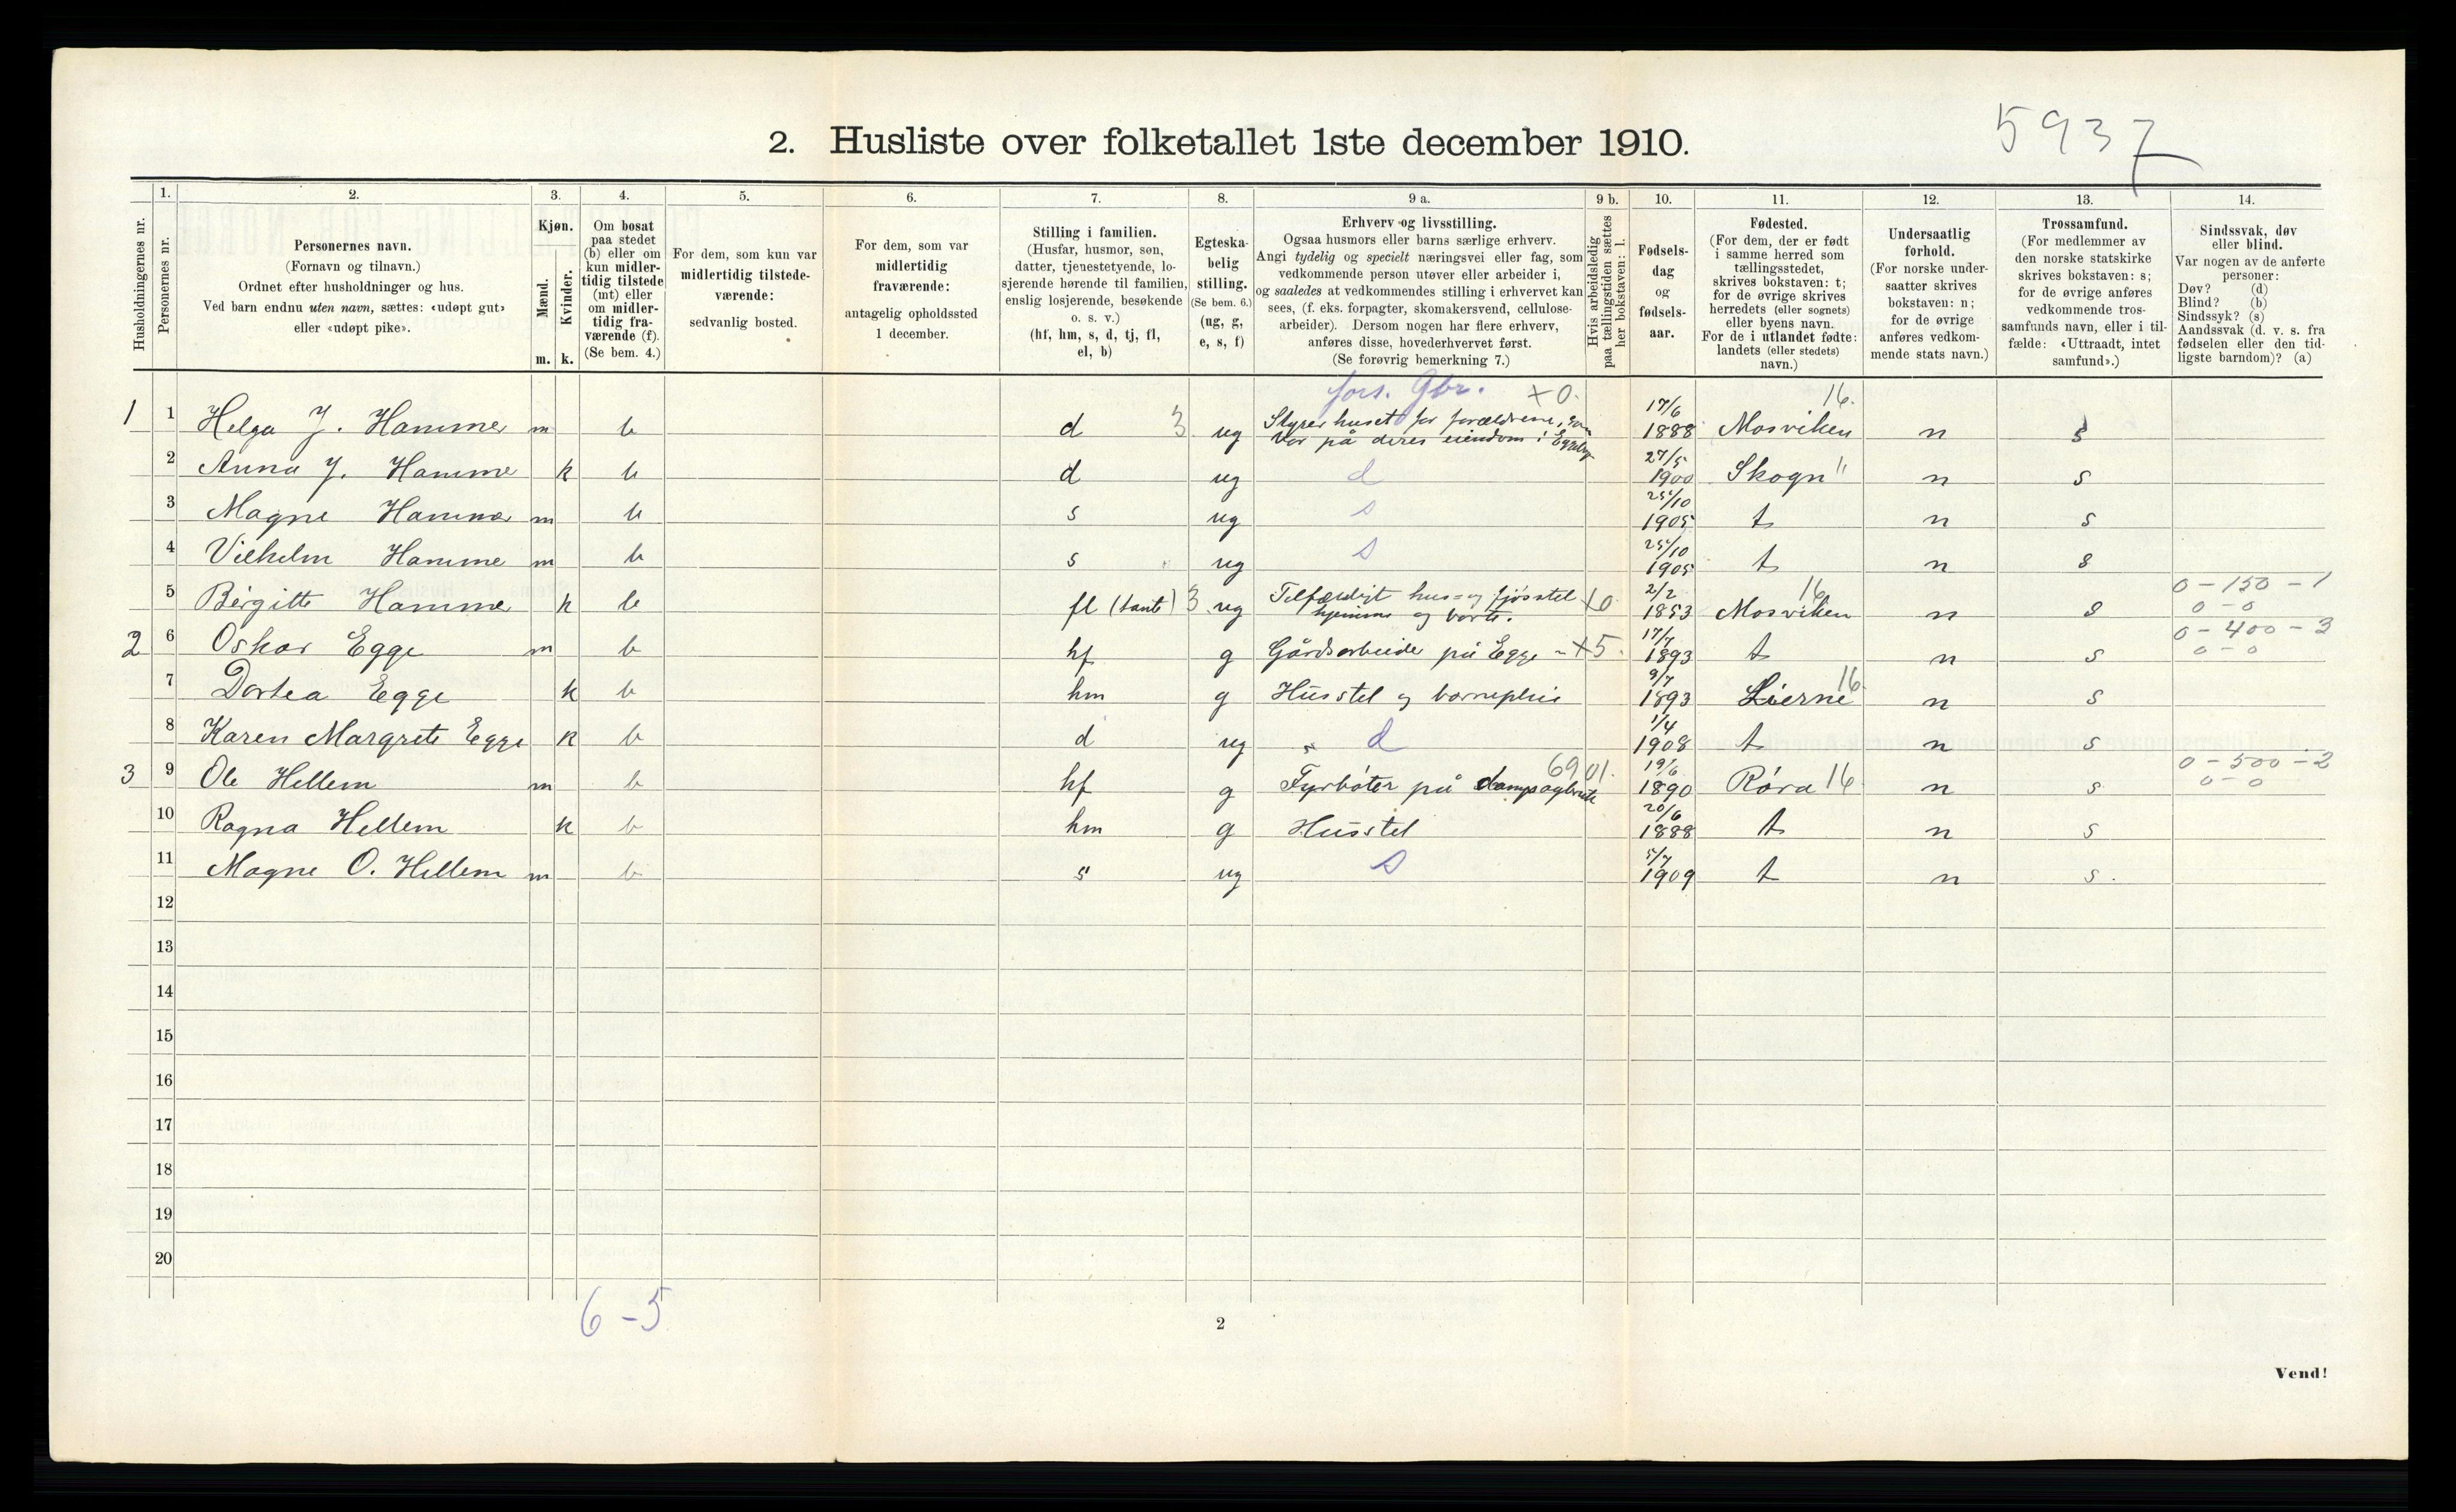 5937
2. Husliste over folketallet 1ste december 1910.
1. 2. 3. 4. 5. 6. 7. 8. 9 a. 9 b. 10. 11. 12. 13. 14.
Husholdningernes nr.
Personernes nr.
Personernes navn.
(Fornavn og tilnavn.)
Ordnet efter husholdninger og hus.
Ved barn endnu uten navn, sættes: «udøpt gut»
eller «udøpt pike».
Kjøn.
Mænd.
Kvinder.
m. k.
Om bosat
paa stedet
(b) eller om
kun midler-
tidig tilstede
(mt) eller
om midler-
tidig fra-
værende (f).
(Se bem. 4.)
For dem, som kun var
midlertidig tilstede-
værende:
sedvanlig bosted.
For dem, som var
midlertidig
fraværende:
antagelig opholdssted
1 december.
Stilling i familien.
(Husfar, husmor, søn,
datter, tjenestetyende, lo-
sjerende hørende til familien,
enslig losjerende, besøkende
o. s. v.)
(hf, hm, s, d, tj, fl,
el, b)
Egteska-
belig
stilling.
(Se bem. 6.)
(ug, g,
e, s, f)
Erhverv og livsstilling.
Ogsaa husmors eller barns særlige erhverv.
Angi tydelig og specielt næringsvei eller fag, som
vedkommende person utøver eller arbeider i,
og saaledes at vedkommendes stilling i erhvervet kan
sees, (f. eks. forpagter, skomakersvend, cellulose-
arbeider). Dersom nogen har flere erhverv,
anføres disse, hovederhvervet først.
(Se forøvrig bemerkning 7.)
Hvis arbeidsledig
paa tællingstiden sættes
her bokstaven: l.
Fødsels-
dag
og
fødsels-
aar.
Fødested.
(For dem, der er født
i samme herred som
tællingsstedet,
skrives bokstaven: t;
for de øvrige skrives
herredets (eller sognets)
eller byens navn.
For de i utlandet fødte:
landets (eller stedets)
navn.)
Undersaatlig
forhold.
(For norske under-
saatter skrives
bokstaven: n;
for de øvrige
anføres vedkom-
mende stats navn.)
Trossamfund.
(For medlemmer av
den norske statskirke
skrives bokstaven: s;
for de øvrige anføres
vedkommende tros-
samfunds navn, eller i til-
fælde: «Uttraadt, intet
samfund».)
Sindssvak, døv
eller blind.
Var nogen av de anførte
personer:
Døv? (d)
Blind? (b)
Sindssyk? (s)
Aandssvak (d. v. s. fra
fødselen eller den tid-
ligste barndom)? (a)
fors. Gbr. +0. 16.
1 1 Helga J. Hamme m b d 3 ug Styrer huset for forældrene, som 17/6 1888 Mosviken n s
bor på deres eiendom i
2 Anna J. Hamme k b d ug d 27/5 1900 Skogn " n s
3 Magne Hamme m b s ug s 25/10 1905 t n s
4 Vilhelm Hamme m b s ug s 25/10 1905 t n s
5 Birgitte Hamme k b fl (tante) 3 ug Tilfældigt hus= og fjøsstel +0 2/2 1853 Mosviken 16 n s 0-150-1
hjemme og borte. 0-0
2 6 Oskar Egge m b hf g Gårdsarbeide på Egge - +5. 17/7 1893 t n s 0-400-3
0-0
7 Dortea Egge k b hm g Husstel og barnepleie 9/7 1893 Lierne 16. n s
8 Karen Margrete Egge k b d ug " d 1/4 1908 t n s
3 9 Ole Hellem m b hf g Fyrbøter på dampsagbruk 6901. 19/6 1890 Røra 16 n s 0-500-2
0-0
10 Ragna Hellem k b hm g Husstel 20/6 1888 t n s
11 Magne O. Hellem m b s ug s 5/7 1909 t n s.
12
13
14
15
16
17
18
19
20
6-5
2
Vend!